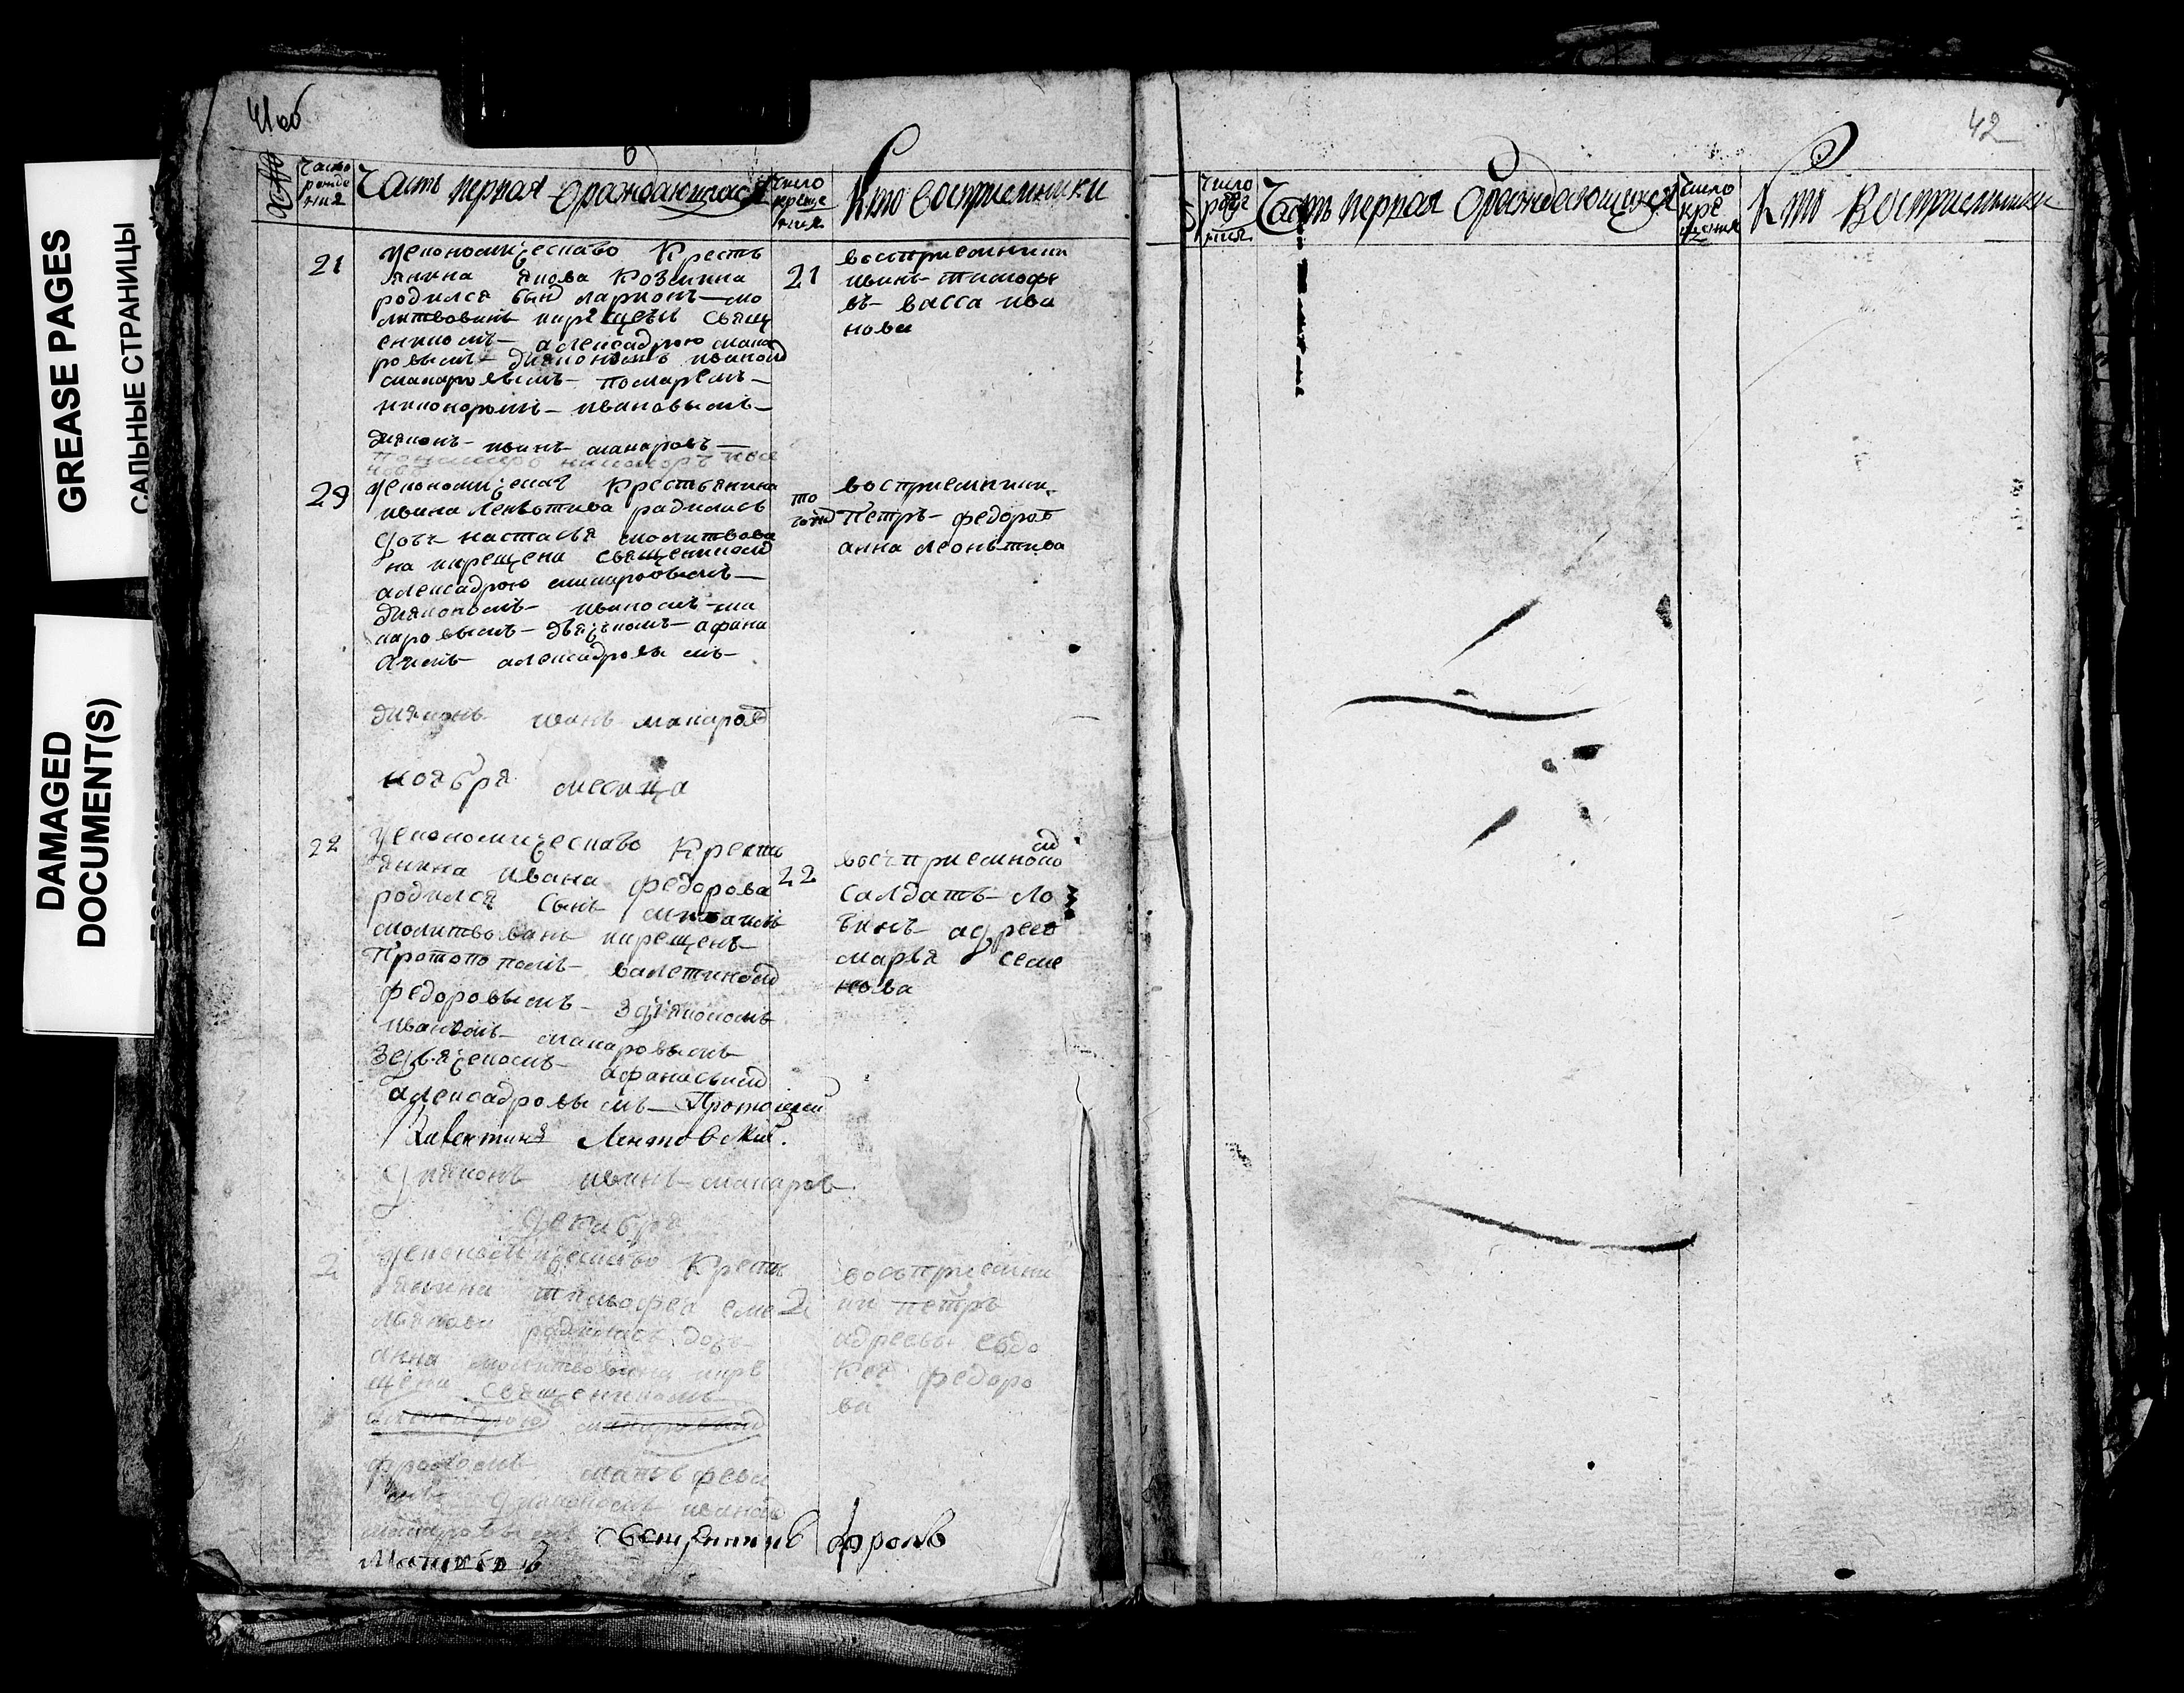 GREASE PAGES
САЛЬНЫЕ СТРАНИЦЫ
DAMAGED
DOCUMENT(S)
41 об
Число рожде ния
Часть первая о раждающихся
Число креще ния
Кто восприемники
21
уекономическаво Кресть
янина Якова Козмина
родился сынъ ларионъ мо
литвованъ икрещенъ свящ
еникомъ алексадрою мака
ровымъ дияконамъ иваномъ
макаровымъ помаремъ
никоноромъ ивановымъ
дияконъ иванъ макаровъ
21
восприемники
иванъ тимофе
въ васса ива
нова
29
уекономическаг крестьянина
ивана леньтива радилась
дочь настасья молитвова
на икрещена священикомъ
алексадрою макаровымъ
диякономъ иваномъ ма
каровымъ дьячкомъ афана
сиемъ алексадровымъ
дияконъ иванъ макаровъ
то гожъ
восприемники
Петръ федоров
анна леоньтива
ноября месяца
22
уекономическаво Кресть
янина ивана федорова
родился сынъ михаилъ
молитвованъ икрещенъ
Протопопомъ валетиномъ
федоровымъ здиякономъ
иваномъ макаровымъ
здьячкомъ афанасиемъ
алексадровымъ Протоиерей
Валентинъ Лентовский.
дияконъ иванъ макаров
22
восприемником
салдатъ ло
гинъ адреев
марья семе
нова
декабря
2
уекономическаво Кресть
янина тимофея еме
льянова радилась дочь
анна молитвована икре
щена священикомъ
алексадрою макаровымъ
фроломъ матвфевы
мъ дияконом иваномъ
макаровымъ Священникъ Фролъ
Матвеевъ
2
восприемни
ки петръ
адреевъ евдо
кея федоро
ва
42
Число рож ния
Часть первая о раждающихся
Число кре щения
Кто восприемники